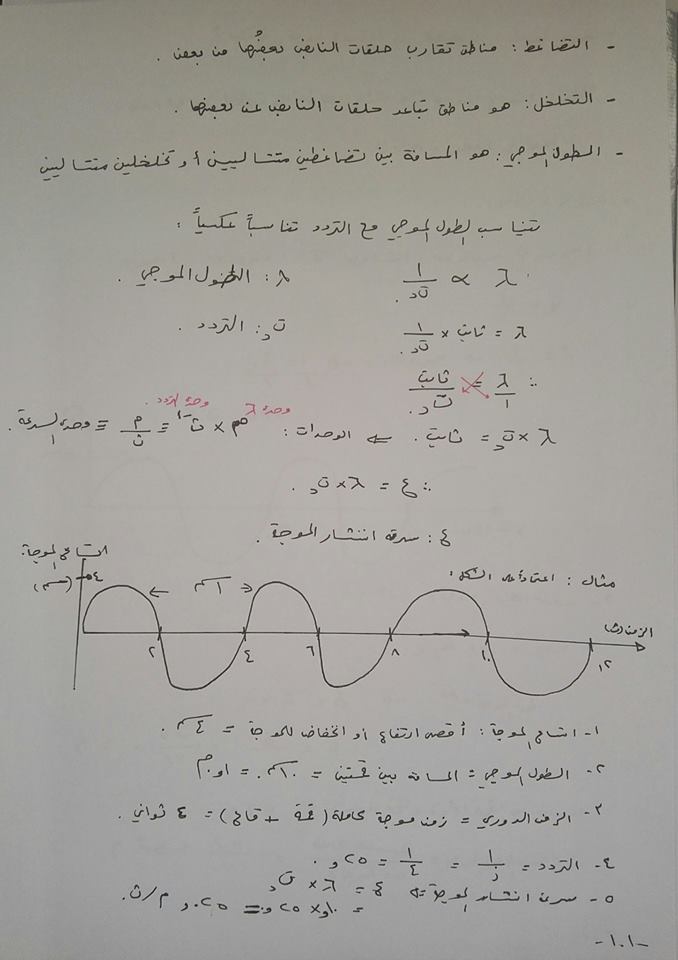 - التضاغط : مناطق تقارب حلقات النابض بعضُها من بعض .
- التخلخل : هو مناطق تباعد حلقات النابض عن بعضها .
- الطول الموجي : هو المسافة بين تضاغطين متتاليين أو تخلخلين متتاليين
تتناسب الطول الموجي مع التردد تناسباً عكسياً :
λ ∝ ١/تد . λ : الطول الموجي .
λ = ثابت × ١/تد . تد : التردد .
∴ λ/١ = ثابت/تد .
وحدة λ وحدة التردد .
λ × تد = ثابت . ⇐ الوحدات : م × ث⁻¹ ≡ م/ث ≡ وحدة السرعة .
∴ ع = λ × تد .
ع : سرعة انتشار الموجة .
اتساع الموجة
مثال : اعتماداً على الشكل :
٤
(سم)
١٠سم
الزمن (ث)
٢ ٤ ٦ ٨ ١٠ ١٢
١- اتساع الموجة : أقصى ارتفاع أو انخفاض للموجة = ٤سم .
٢- الطول الموجي = المسافة بين قمتين = ١٠سم = ٠,١م
٣- الزمن الدوري = زمن موجة كاملة (قمة + قاع) = ٤ ثواني .
٤- التردد = ١/ز = ١/٤ = ٠,٢٥
٥- سرعة انتشار الموجة ⇐ ع = λ × تد
= ٠,١ × ٠,٢٥ = ٠,٠٢٥ م/ث .
-١٠١-